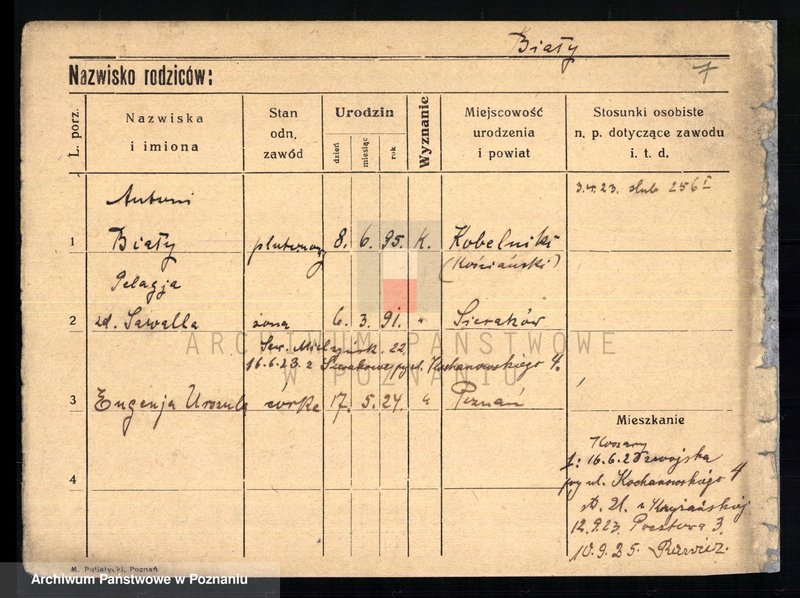 Biały
Nazwisko rodziców:
7
L. porz.
Nazwiska
i imiona
Stan
odn.
zawód
Urodzin
dzień
miesiąc
rok
Wyznanie
Miejscowość
urodzenia
i powiat
Stosunki osobiste
n. p. dotyczące zawodu
i. t. d.
Antoni
3.4.23. slub 256 I
1 Biały plutonowy 8. 6. 95. K. Kobelniki
(Kościański)
Pelagja
2 zd. Sawalla żona 6. 3. 91. " Sieraków
22
16.6.23 z ul. Kochanowskiego 4.
3 Eugenja Urszula corka 17. 5. 24. " Poznań
Mieszkanie
Koszary
1: 16.6.23
4
przy ul. Kochanowskiego 4
12.9.23 Pocztowa 3.
10.9.25. Rawicz.
ARCHIWUM PAŃSTWOWE
W POZNANIU
M. Putiatycki, Poznań
Archiwum Państwowe w Poznaniu